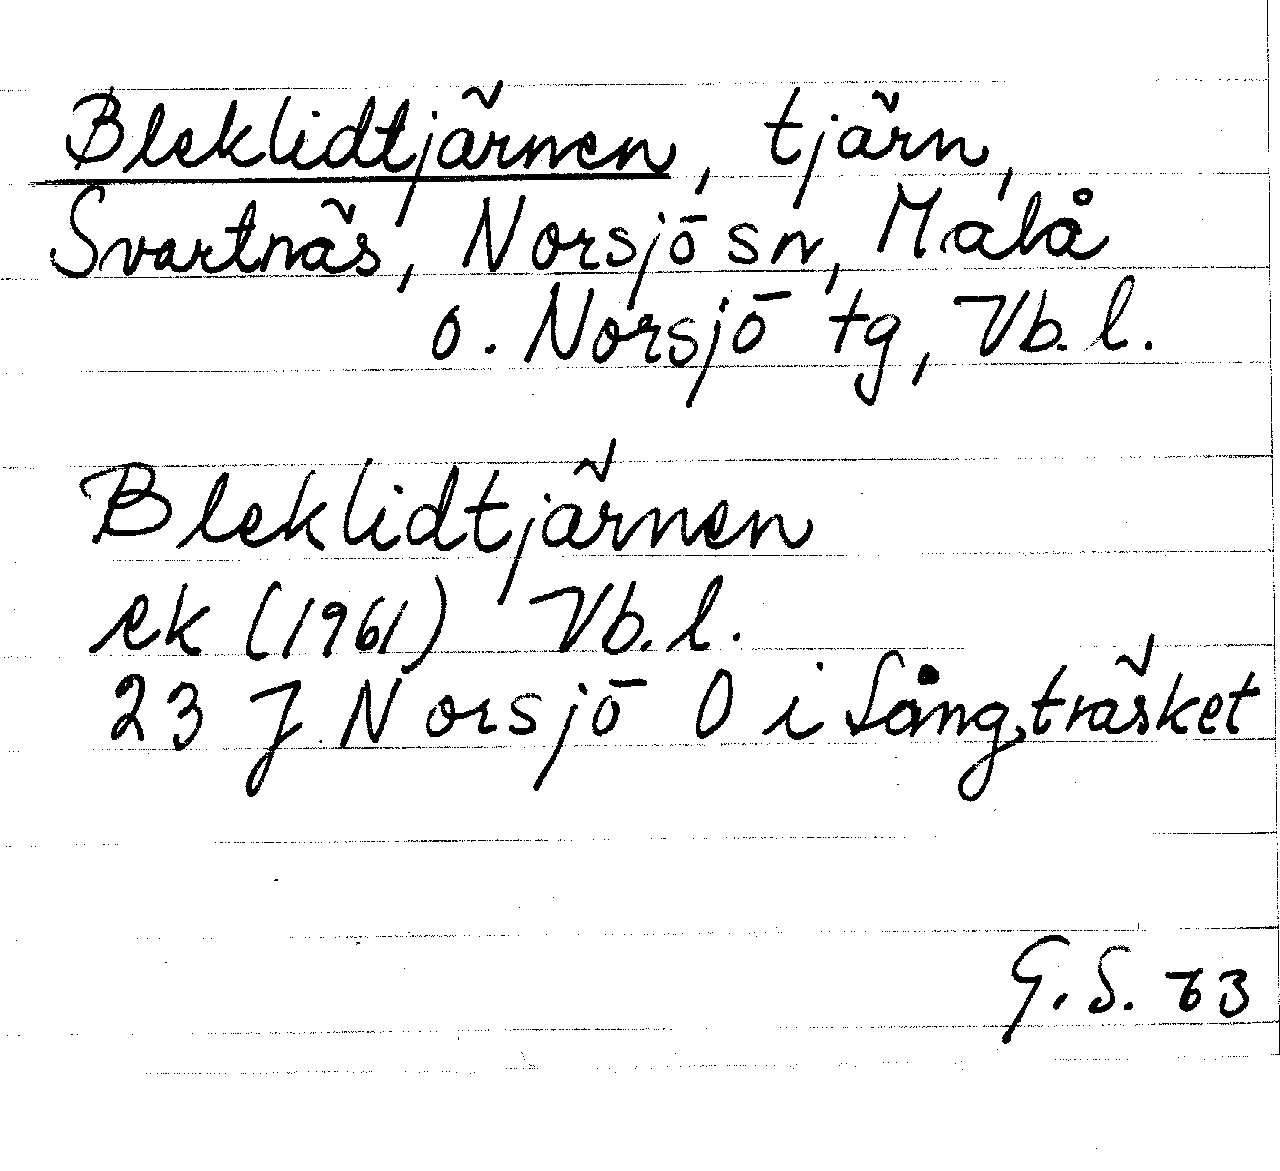 Bleklidtjärnen, tjärn,
Svartnäs, Norsjö sn, Malå
o. Norsjö tg, Vb. l.
Bleklidtjärnen
ek (1961) Vb. l.
23 J Norsjö O i Långträsket
G. S. 63